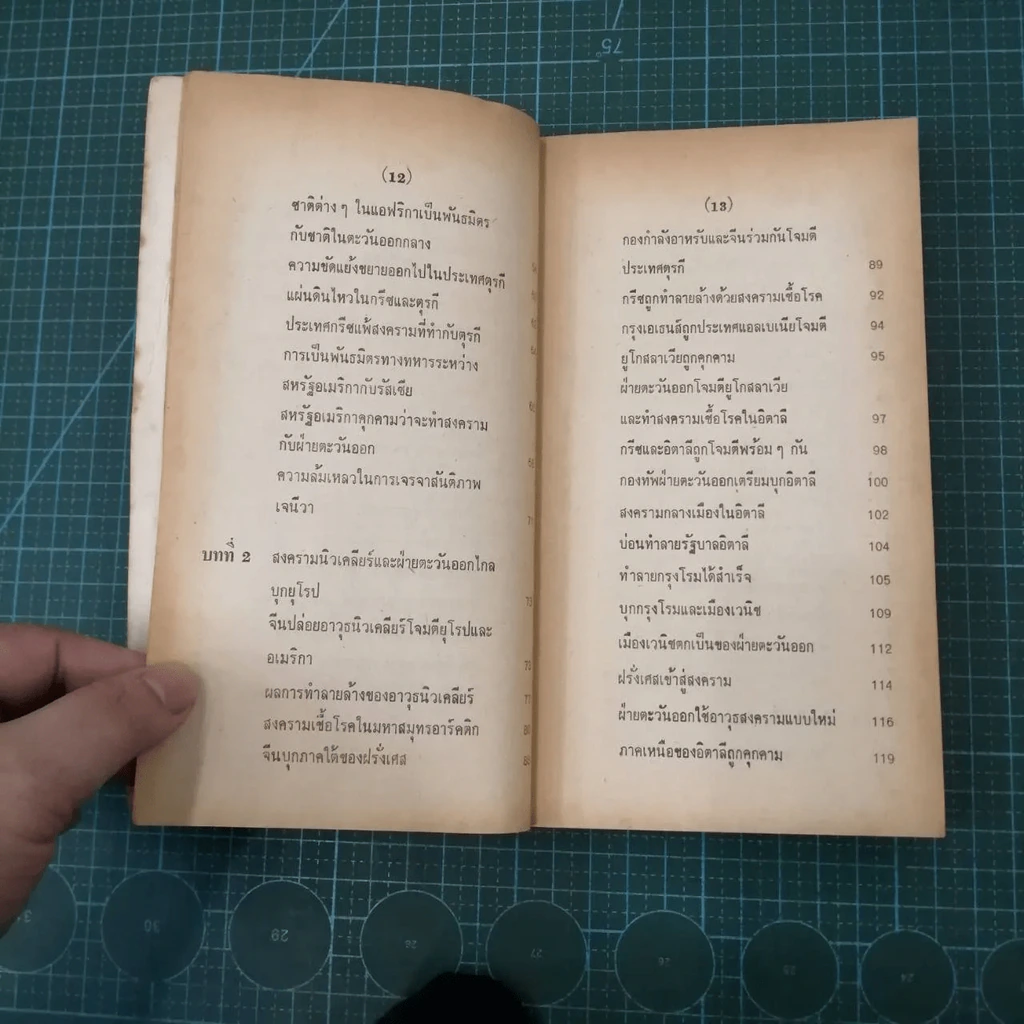 (12)
ชาติต่าง ๆ ในแอฟริกาเป็นพันธมิตร
กับชาติในตะวันออกกลาง
ความขัดแย้งขยายออกไปในประเทศตุรกี
แผ่นดินไหวในกรีซและตุรกี
ประเทศกรีซแพ้สงครามที่ทำกับตุรกี
การเป็นพันธมิตรทางทหารระหว่าง
สหรัฐอเมริกากับรัสเซีย
สหรัฐอเมริกาคุกคามว่าจะทำสงคราม
กับฝ่ายตะวันออก
ความล้มเหลวในการเจรจาสันติภาพ
เจนีวา
บทที่ 2 สงครามนิวเคลียร์และฝ่ายตะวันออกไกล
บุกยุโรป 73
จีนปล่อยอาวุธนิวเคลียร์โจมตียุโรปและ
อเมริกา
ผลการทำลายล้างของอาวุธนิวเคลียร์ 77
สงครามเชื้อโรคในมหาสมุทรอาร์คติก 80
จีนบุกภาคใต้ของฝรั่งเศส
(13)
กองกำลังอาหรับและจีนร่วมกันโจมตี
ประเทศตุรกี 89
กรีซถูกทำลายล้างด้วยสงครามเชื้อโรค 92
กรุงเอเธนส์ถูกประเทศแอลเบเนียโจมตี 94
ยูโกสลาเวียถูกคุกคาม 95
ฝ่ายตะวันออกโจมตียูโกสลาเวีย
และทำสงครามเชื้อโรคในอิตาลี 97
กรีซและอิตาลีถูกโจมตีพร้อม ๆ กัน 98
กองทัพฝ่ายตะวันออกเตรียมบุกอิตาลี 100
สงครามกลางเมืองในอิตาลี 102
บ่อนทำลายรัฐบาลอิตาลี 104
ทำลายกรุงโรมได้สำเร็จ 105
บุกกรุงโรมและเมืองเวนิช 109
เมืองเวนิชตกเป็นของฝ่ายตะวันออก 112
ฝรั่งเศสเข้าสู่สงคราม 114
ฝ่ายตะวันออกใช้อาวุธสงครามแบบใหม่ 116
ภาคเหนือของอิตาลีถูกคุกคาม 119
75°
30
29
27